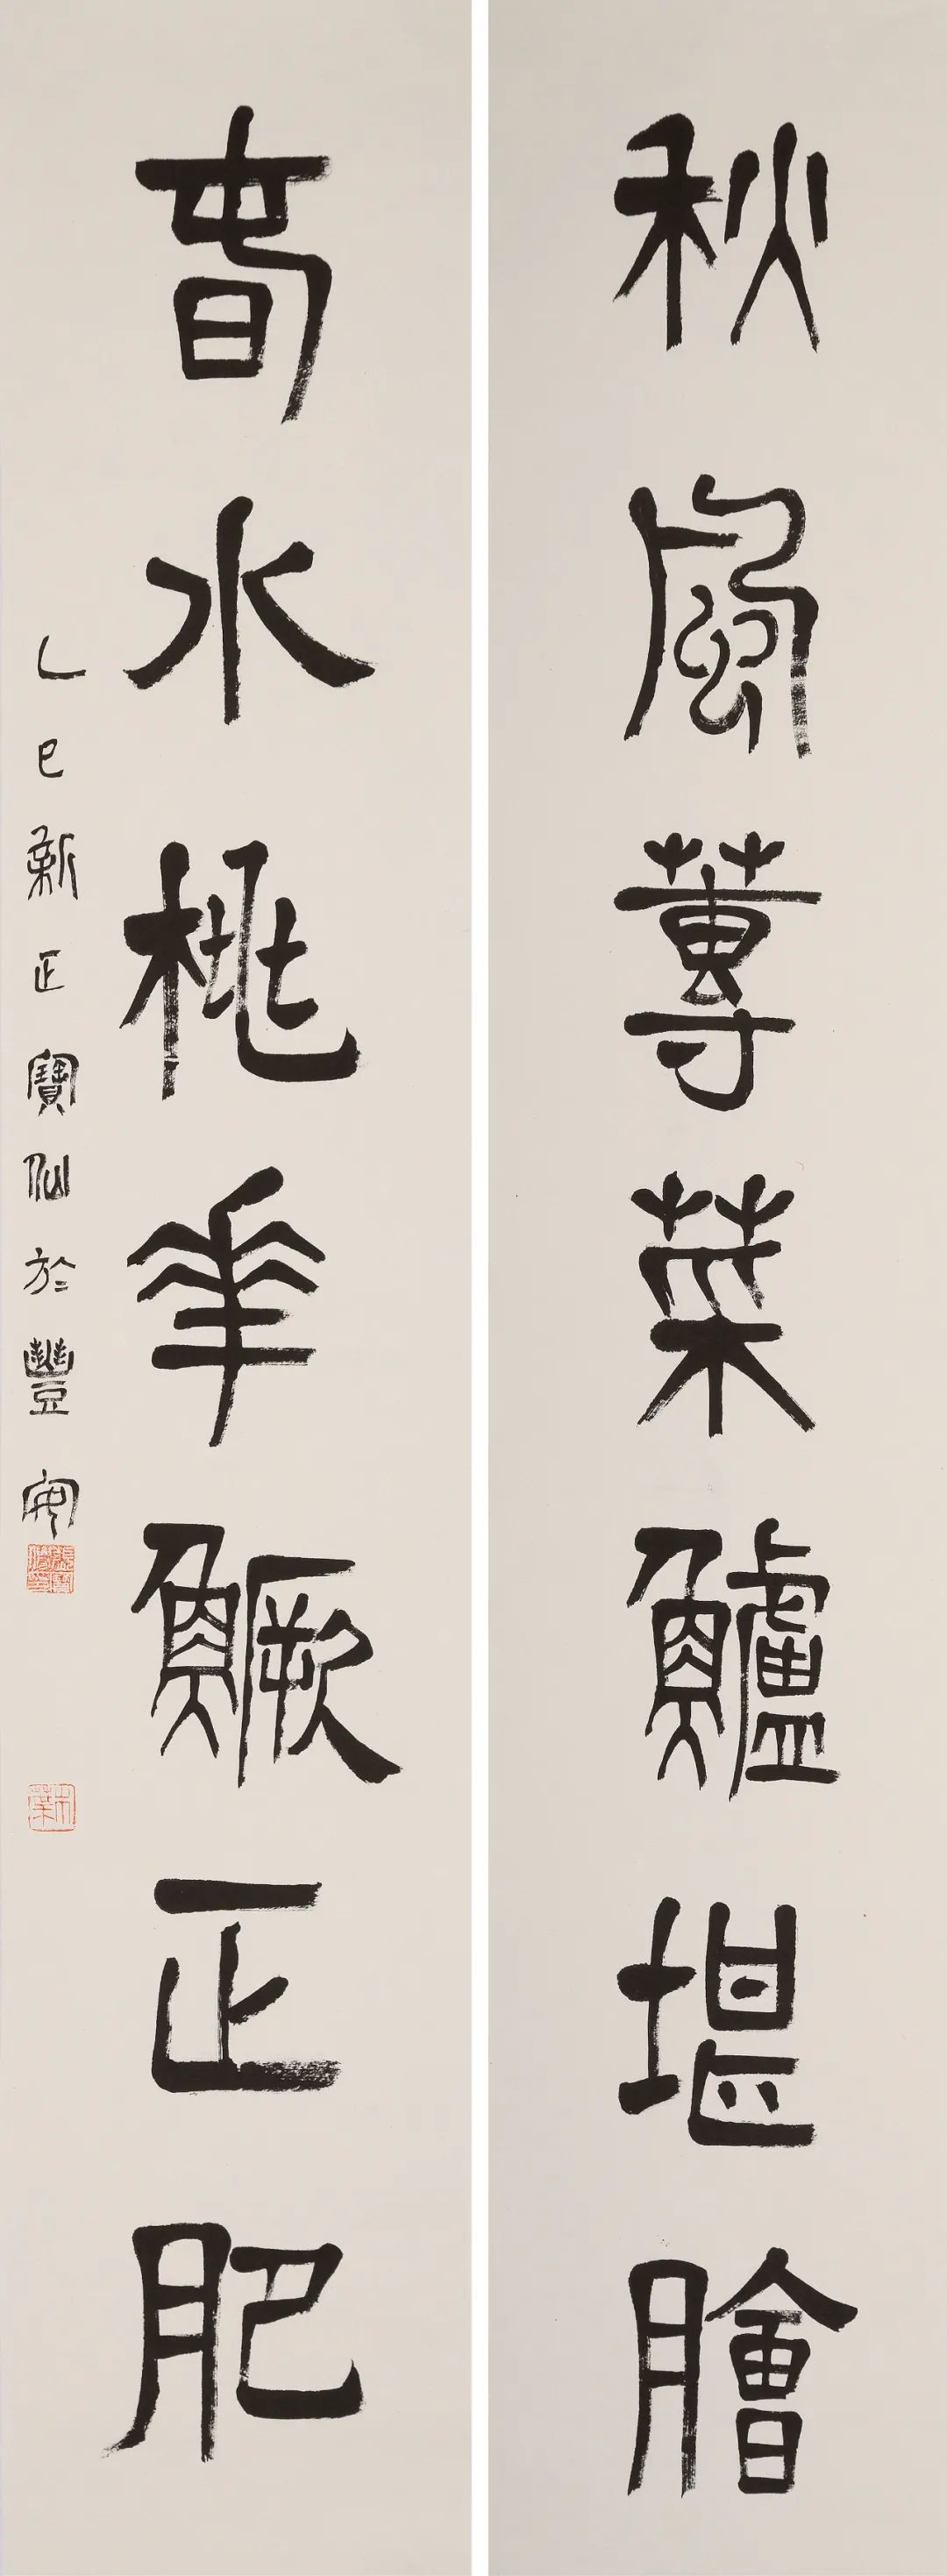 秋風蓴菜鱸堪膾
春水桃華鱖正肥
乙巳新正寶仙於豐安